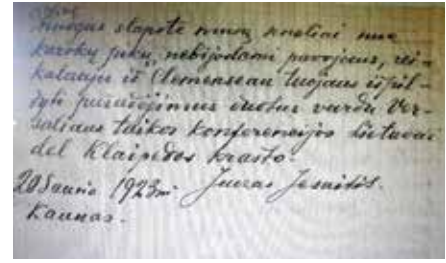 žmogus slaptė mūsų
karokų jukų, nebijodami pavojaus, rei-
kalauju iš Clemenseau tuojaus išpil-
dyti pažadėjimus duotus vardu Ver-
saliaus taikos konferencijos Lietuvai
del Klaipėdos krašto.
20 Sausio 1923 m. Juozas
Kaunas.